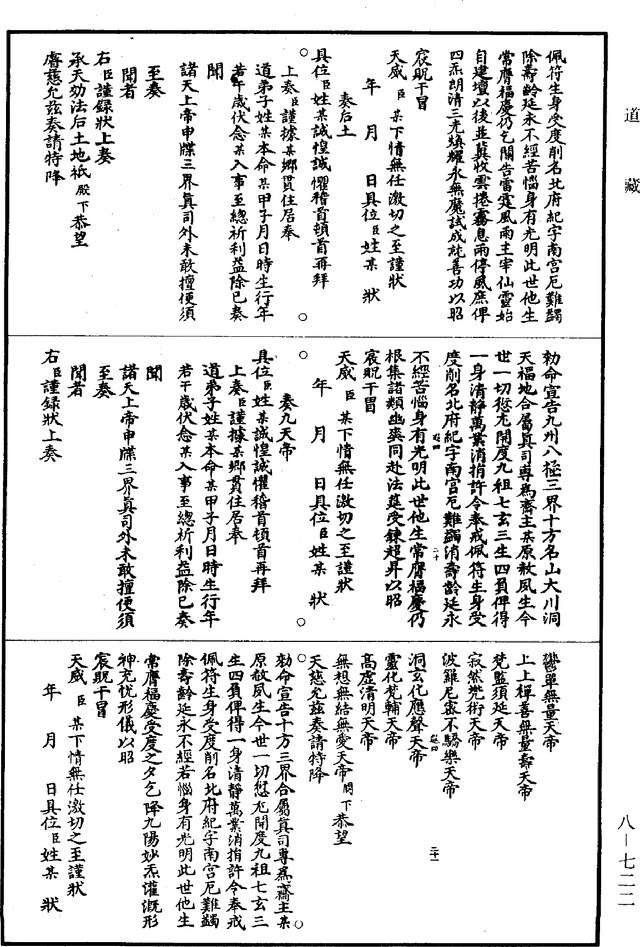 道藏
佩符生身受度削名北府紀字南宫厄難蠲
除壽齡延永不經苦惱身有光明此世他生
常膺福慶仍乞關告雷霆風雨主宰仙靈始
自建壇以後並冀收雲捲霧息雨停風庶俾
四炁朗清三光煥耀永無魔試成就善功以昭
宸貺干冒
天威臣某下情無任激切之至謹狀
年月日具位臣姓某狀
奏后土
具位臣姓某誠惶誠懼稽首頓首再拜
上奏臣謹據某鄉貫住居奉
道弟子姓某本命某甲子月日時生行年
若干歲伏念某入事至總祈利益除已奏
聞
諸天上帝申牒三界真司外未敢擅便須
至奏
聞者
右臣謹録狀上奏
承天効法后土地祇殿下恭望
睿慈允兹奏請特降
勑命宣告九州八極三界十方名山大川洞
天福地合屬真司專爲齋主某原赦夙生今
世一切愆尤開度九祖七玄三生四負俾得
一身清靜萬業消捐許令奉戒佩符生身受
度削名北府紀字南宫厄難蠲消壽齡延永
不經苦惱身有光明此世他生常膺福慶仍
根集諸類幽爽同赴法筵受鍊超昇以昭
宸貺干冒
天威臣某下情無任激切之至謹狀
年月日具位臣姓某狀
奏九天帝
具位臣姓某誠惶誠懼稽首頓首再拜
上奏臣謹據某鄉貫住居奉
道弟子姓某本命某甲子月日時生行年
若干歲伏念某入事至總祈利益除已奏
聞
諸天上帝申牒三界真司外未敢擅便須
至奏
聞者
右臣謹録狀上奏
鬱單無量天帝
上上禪善無量壽天帝
梵監須延天帝
寂然兠術天帝
波羅尼宻不驕樂天帝
洞玄化應聲天帝
靈化梵輔天帝
高虛清明天帝
無想無結無愛天帝閽下恭望
天慈允兹奏請特降
勑命宣告十方三界合屬真司專爲齋主某
原赦夙生今世一切愆尤開度九祖七玄三
生四負俾得一身清靜萬業消捐許令奉戒
佩符生身受度削名北府紀字南宫厄難蠲
除壽齡延永不經苦惱身有光明此世他生
常膺福慶受度之夕乞降九陽妙炁灌溉形
神充悦形儀以昭
宸貺干冒
天威臣某下情無任激切之至謹狀
年月日具位臣姓某狀
八－七二二